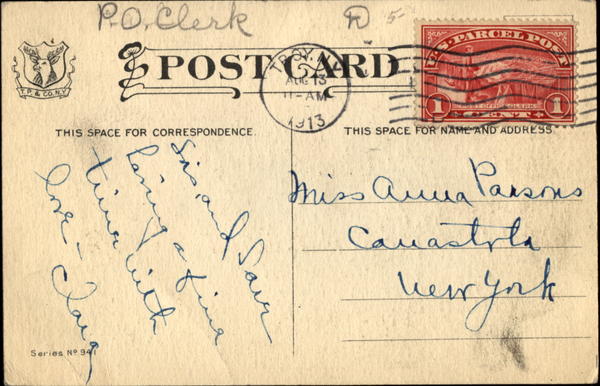 P.O. Clerk
5-
POST CARD
T. P. & CO. N.Y.
TROY, N.Y.
AUG 13
11-AM
1913
U.S. PARCEL POST
POST OFFICE CLERK
1 CENT 1
THIS SPACE FOR CORRESPONDENCE.
THIS SPACE FOR NAME AND ADDRESS.
Sis, and
having a fine
time with
love - Clara
Miss Anna Parsons
Canastota
New York
Series No 941